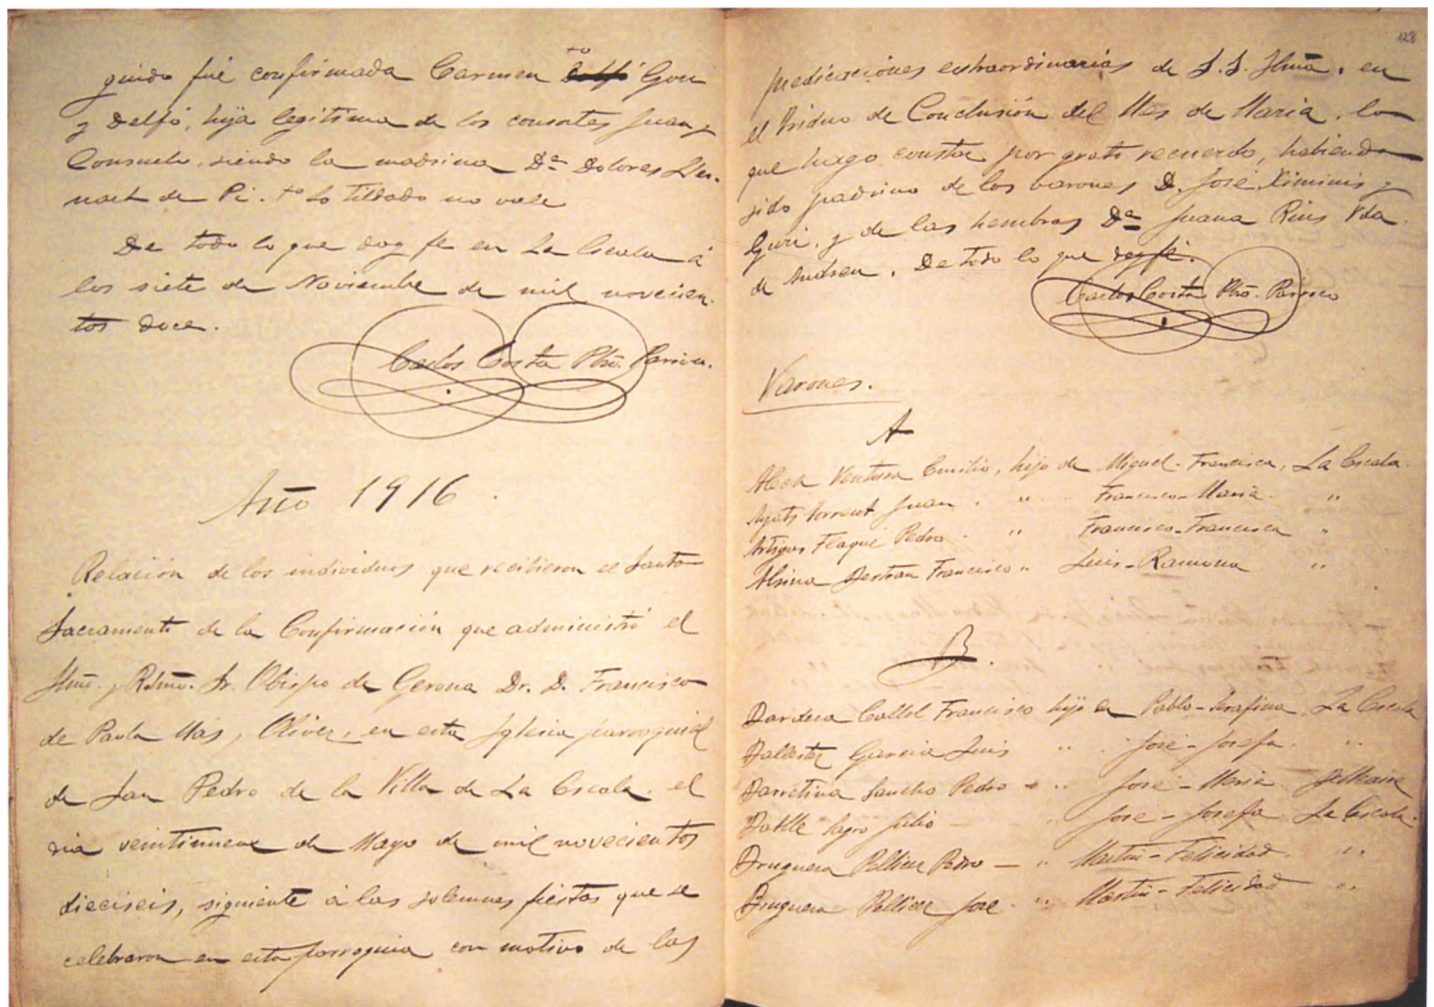 guido fué confirmada Carmen Gou
y Delfó, hija legitima de los consortes Juan y
Consuelo, siendo la madrina Dª Dolores
de Pi. Lo tildado no vale
De todo lo que doy fe en La Escala á
los siete de Noviembre de mil novecien-
tos doce.
Carlos Costa Pbro. Parroco.
Año 1916.
Relación de los individuos que recibieron el Santo
Sacramento de la Confirmación que administró el
Iltmo. y Rdmo. Sr. Obispo de Gerona Dr. D. Francisco
de Paula Mas y Oliver, en esta Iglesia parroquial
de San Pedro de la Villa de La Escala, el
dia veintinueve de Mayo de mil novecientos
dieciseis, siguiente á las solemnes fiestas que se
celebraron en esta parroquia con motivo de las
128
predicaciones extraordinarias de S. S. Iltma. en
el Triduo de Conclusión del Mes de Maria, lo
que hago constar por grato recuerdo, habiendo
sido padrino de los varones D. José Ximinis y
Guri, y de las hembras Dª Juana Rius Vda
de Andreu. De todo lo que doy fé.
Carlos Costa Pbro. Parroco
Varones.
A
Ventura Emilio, hijo de Miguel-Francisca, La Escala
Torrent Juan. " Francisco-Maria "
Artigas Flaqué Pedro. " Francisco-Francisca "
Alsina Bertran Francisco " Luis-Ramona "
B.
Callol Francisco hijo de Pablo-Serafina La Escala
Ballester Garcia Luis " José-Josefa. "
Barretina Sancho Pedro " José-Maria
Batlle Julio " José-Josefa La Escala.
Bruguera Pellicer Pedro " Martin-Felicidad. "
Bruguera Pellicer José. " Martin-Felicidad "